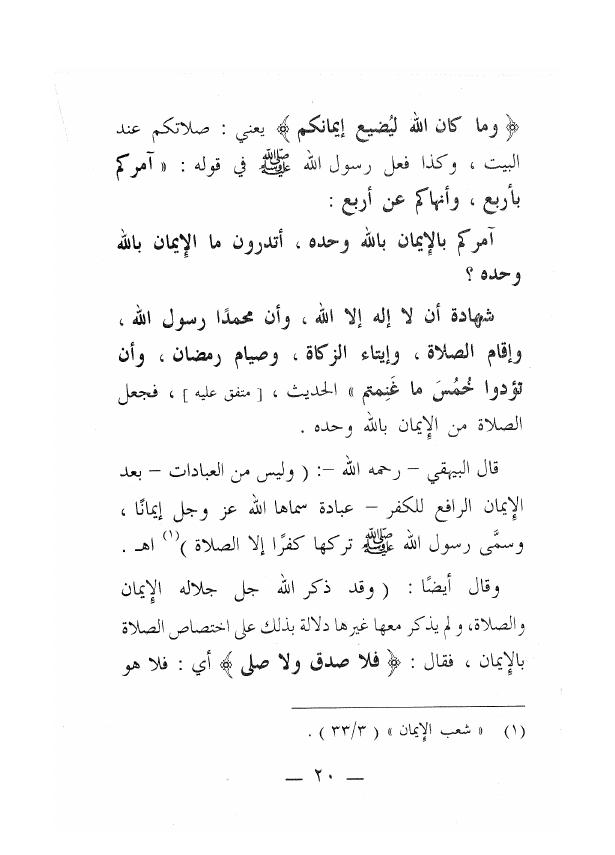 ﴿ وما كان الله ليُضيع إيمانكم ﴾ يعني : صلاتكم عند
البيت ، وكذا فعل رسول الله ﷺ في قوله : « آمركم
بأربع ، وأنهاكم عن أربع :
آمركم بالإيمان بالله وحده ، أتدرون ما الإيمان بالله
وحده ؟
شهادة أن لا إله إلا الله ، وأن محمدًا رسول الله ،
وإقام الصلاة ، وإيتاء الزكاة ، وصيام رمضان ، وأن
تؤدوا خُمُسَ ما غَنِمتم » الحديث ، [ متفق عليه ] ، فجعل
الصلاة من الإيمان بالله وحده .
قال البيهقي – رحمه الله –: ( وليس من العبادات – بعد
الإيمان الرافع للكفر – عبادة سماها الله عز وجل إيمانًا ،
وسمَّى رسول الله ﷺ تركها كفرًا إلا الصلاة )(١) اهـ .
وقال أيضًا : ( وقد ذكر الله جل جلاله الإيمان
والصلاة، ولم يذكر معها غيرها دلالة بذلك على اختصاص الصلاة
بالإيمان ، فقال : ﴿ فلا صدق ولا صلى ﴾ أي : فلا هو
(١) « شعب الإيمان » ( ٣٣/٣ ) .
— ٢٠ —